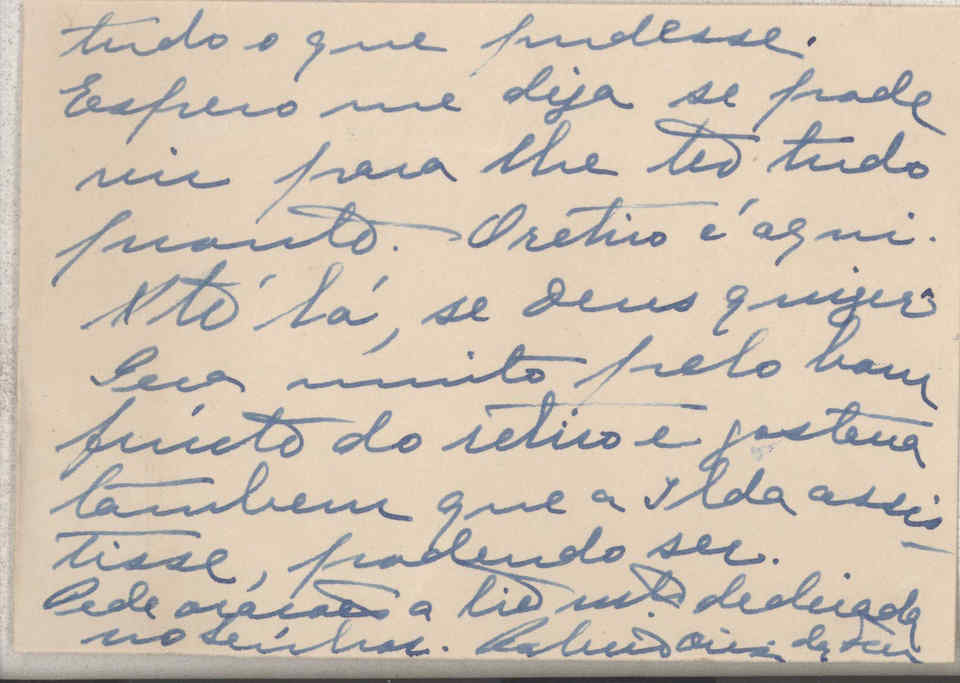 tudo o que pudesse.
Espero me diga se pode
vir para lhe ter tudo
pronto. O retiro é aqui.
Até lá, se Deus quizer
Peça muito pelo bom
fructo do retiro e gostava
tambem que a Ilda assis-
tisse, podendo ser.
Pede orações a tia mto. dedicada
no Senhor.